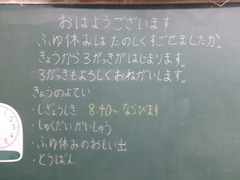 おはようございます
ふゆ休みはたのしくすごせましたか。
きょうから3がっきがはじまります。
3がっきもよろしくおねがいします。
きょうのよてい
・しぎょうしき 8:40〜ならびます
・しゅくだいかいしゅう
・ふゆ休みのおもい出
・とうばん